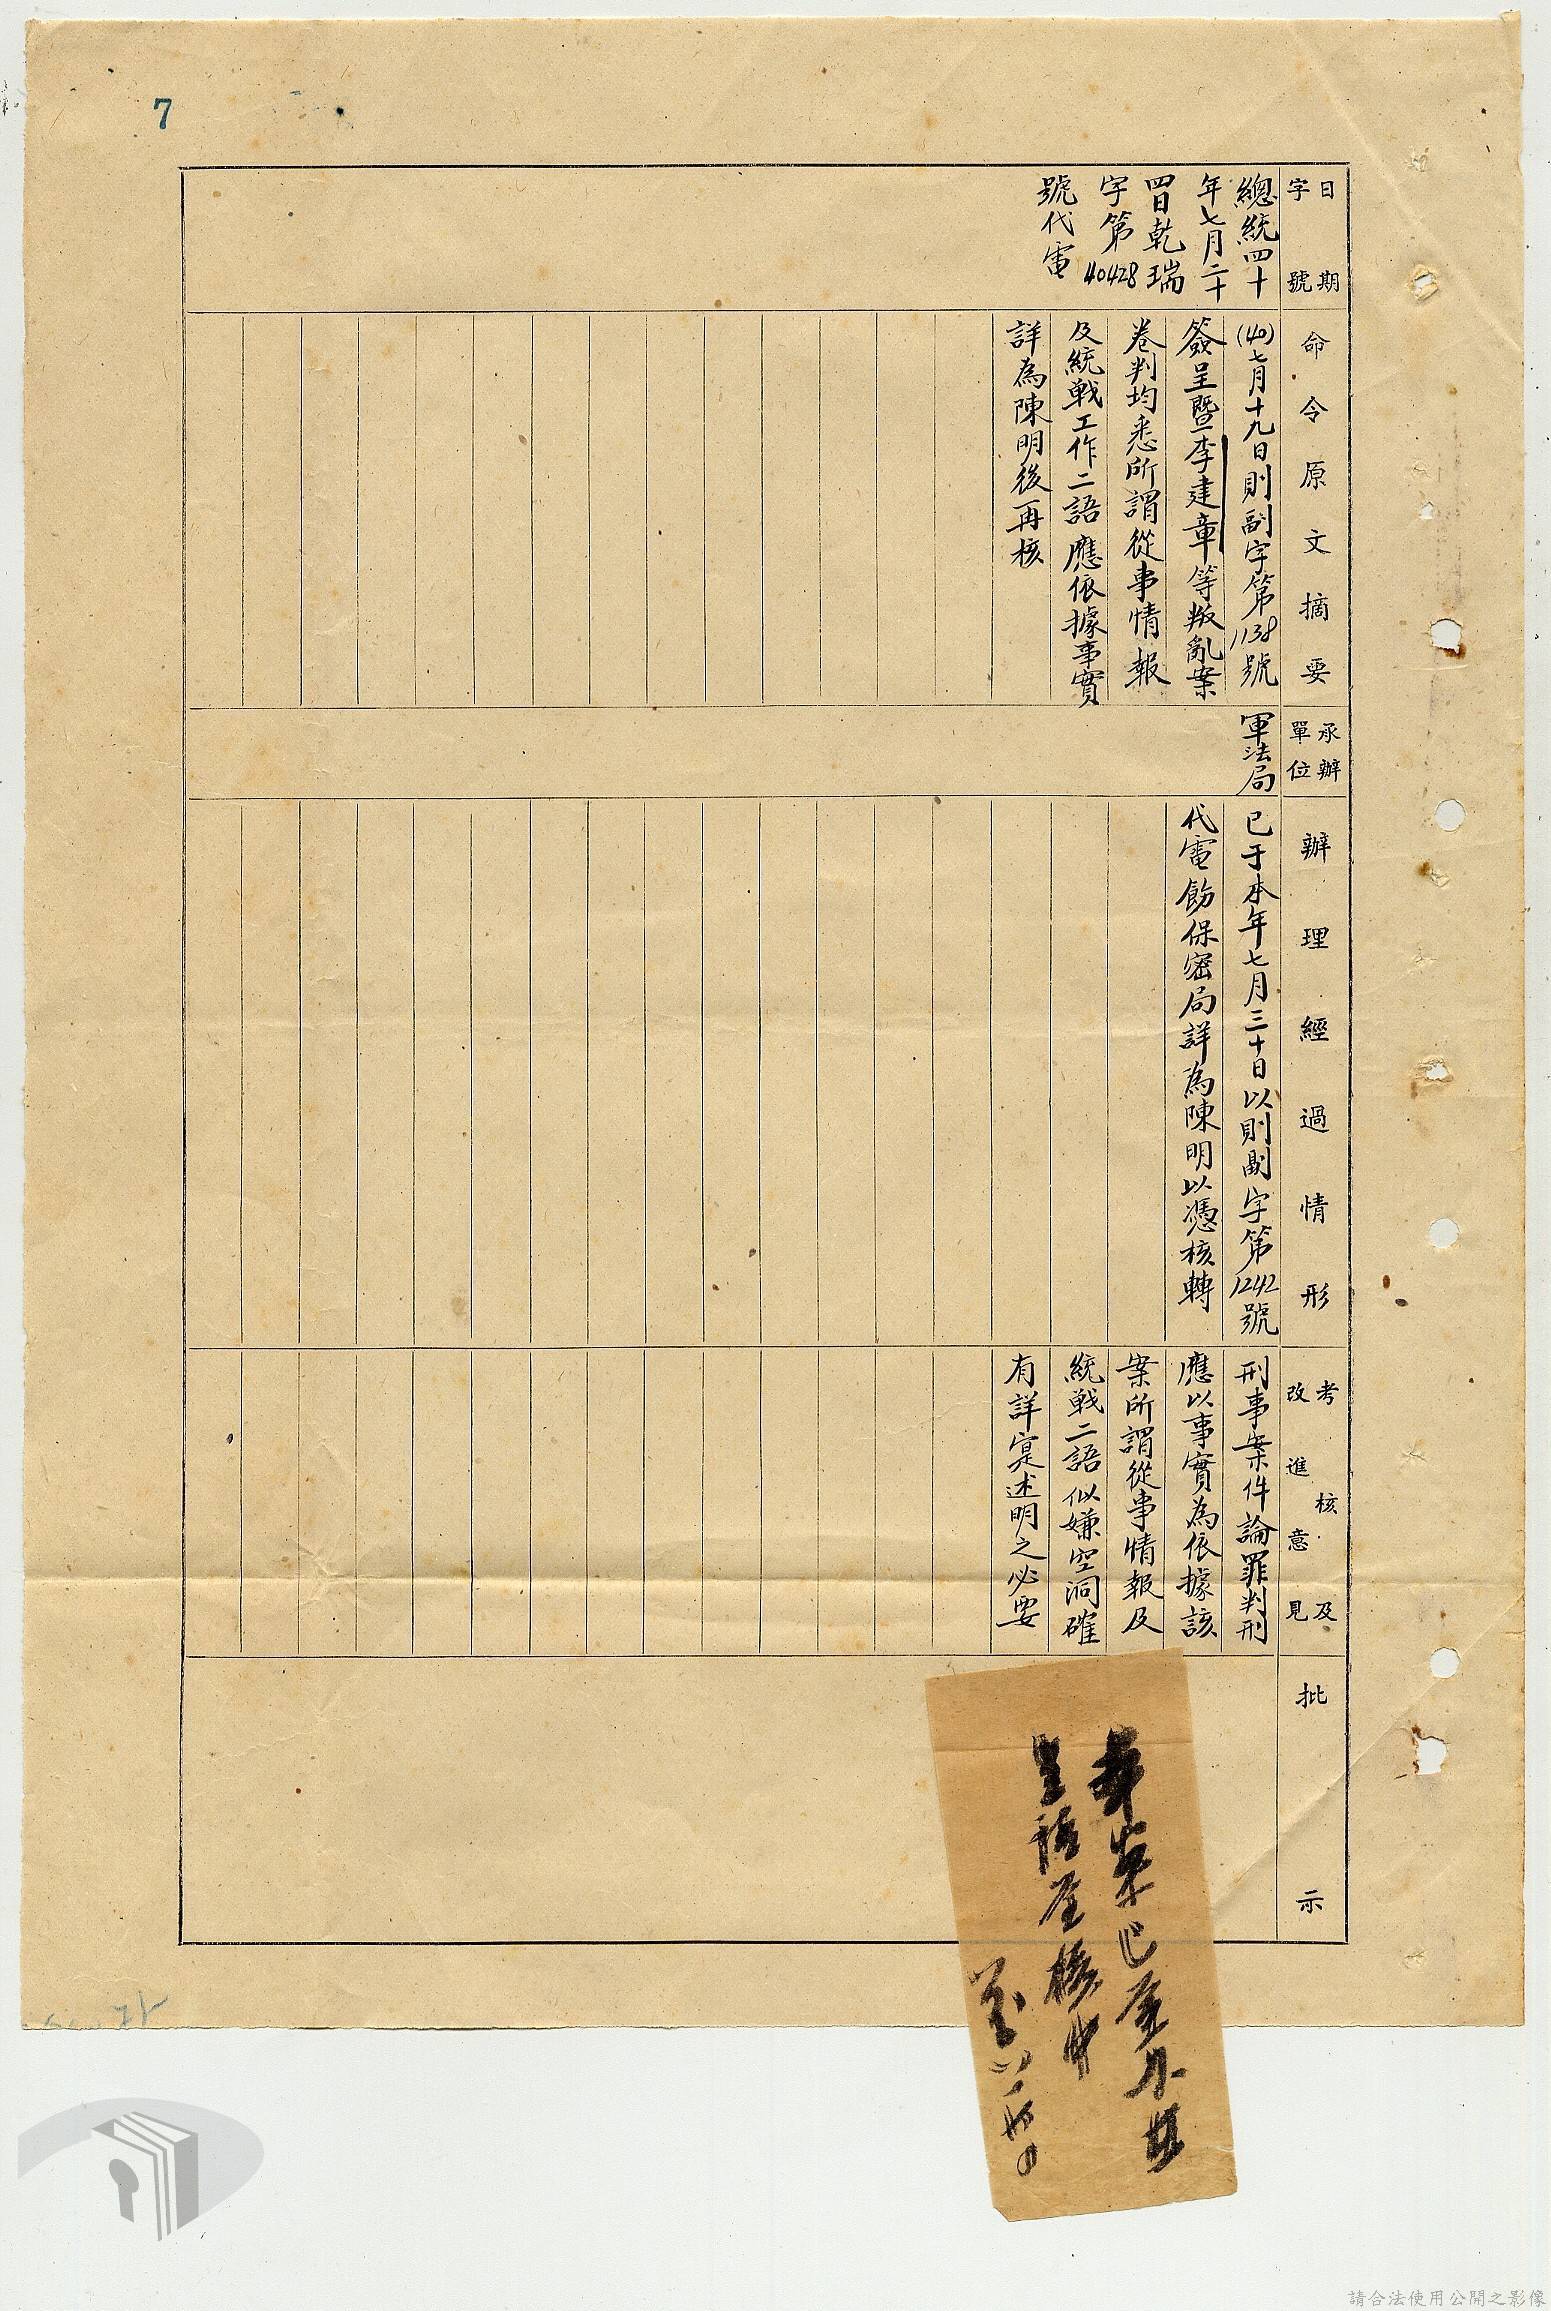 7
日期
字號
總統四十
年七月二十
四日乾瑞
字第40428
號代電
命令原文摘要
(40)七月十九日則副字第1138號
簽呈暨李建章等叛亂案
卷判均悉所謂從事情報
及統戰工作二語應依據事實
詳為陳明後再核
承辦
單位
軍法局
辦理經過情形
已于本年七月三十日以則副字第1242號
代電飭保密局詳為陳明以憑核轉
考核及
改進意見
刑事案件論罪判刑
應以事實為依據該
案所謂從事情報及
統戰二語似嫌空洞確
有詳寔述明之必要
批示
請合法使用公開之影像